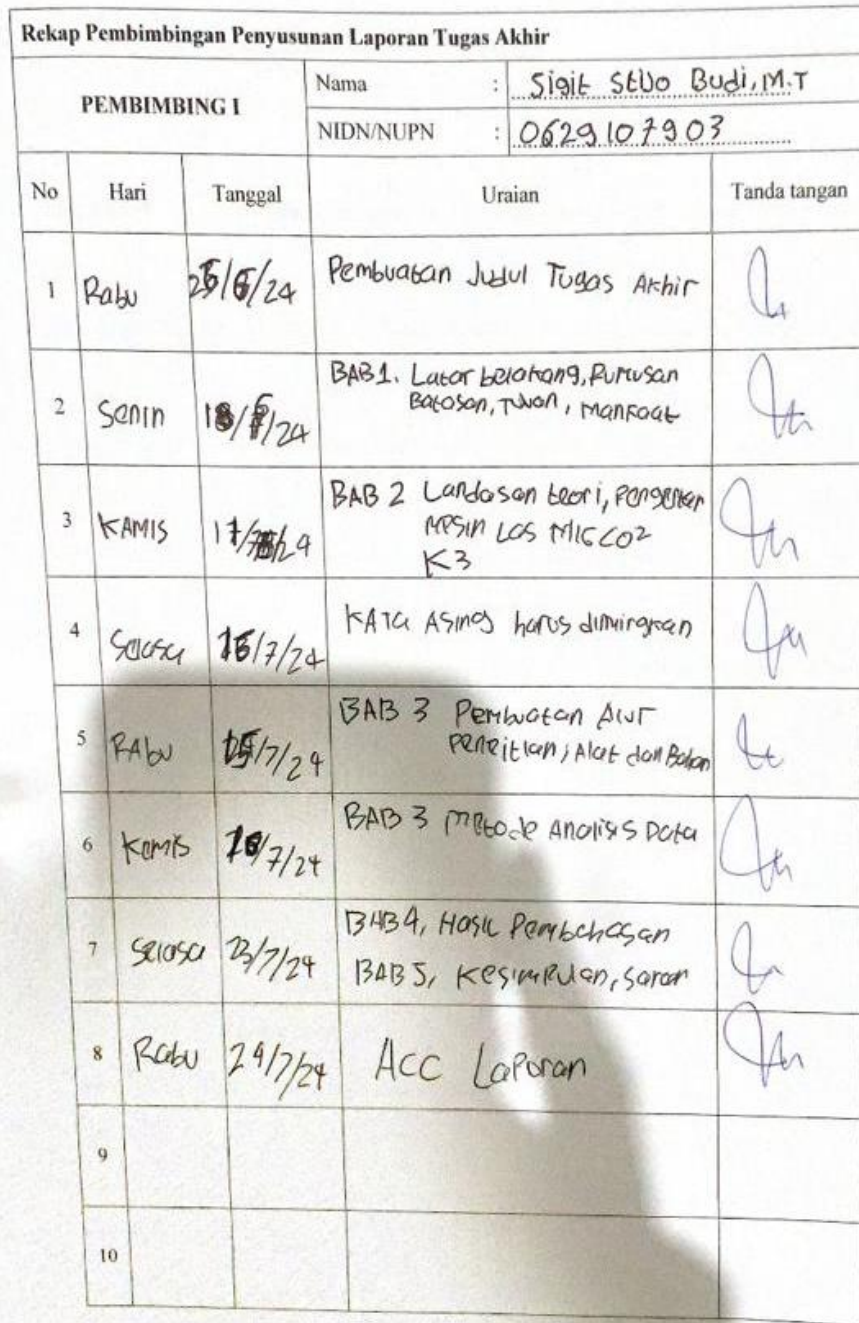 Rekap Pembimbingan Penyusunan Laporan Tugas Akhir
PEMBIMBING I
Nama : Sigit Budi, M.T
NIDN/NUPN : 0629107903
No Hari Tanggal Uraian Tanda tangan
1 Rabu /24 Pembuatan Judul Tugas Akhir
2 Senin /24 BAB 1. Latar belakang, Rumusan
Batasan, Manfaat
3 KAMIS BAB 2 Landasan teori,
Mesin Las MIG CO2
K3
4 Selasa /7/24 KATA Asing harus dimiringkan
5 RAbu /7/24 BAB 3 Pembuatan Alur
Alat dan Bahan
6 Kamis /7/24 BAB 3 Metode Analisis Data
7 Selasa 23/7/24 BAB 4, Hasil Pembahasan
BAB 5, Kesimpulan, Saran
8 Rabu 24/7/24 Acc Laporan
9
10